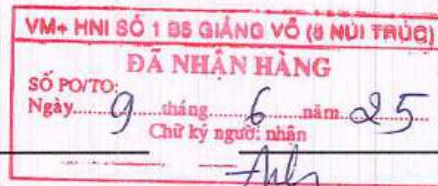 VM+ HNI SỐ 1 B5 GIẢNG VÕ (8 NÚI TRÚC)
ĐÃ NHẬN HÀNG
SỐ PO/TO:
Ngày.....9.....tháng.....6.....năm.....25
Chữ ký người nhận